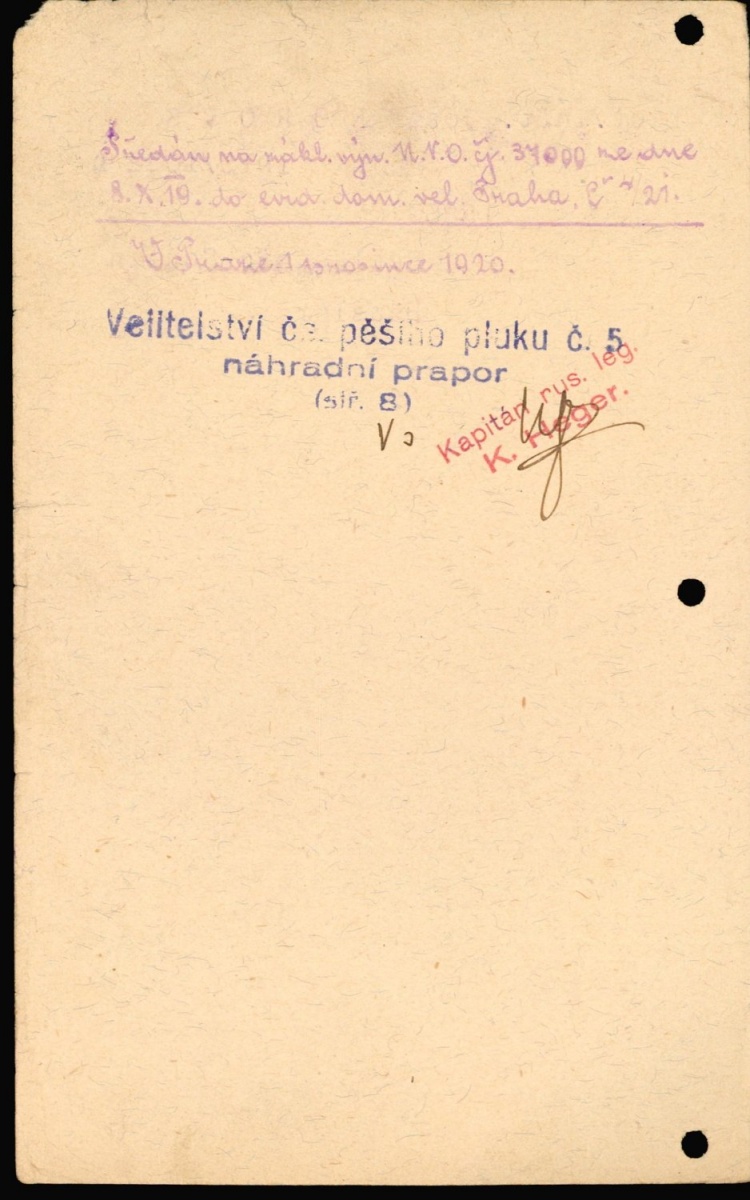 Předán na zákl. výn. M.N.O. čj. 37000 ze dne
8.X.19. do evid. dom. vel. Praha, 21.
V Praze 1 prosince 1920.
Velitelství čs. pěšího pluku č. 5
náhradní prapor
(stř. 8)
Kapitán rus. leg.
K. Heger.